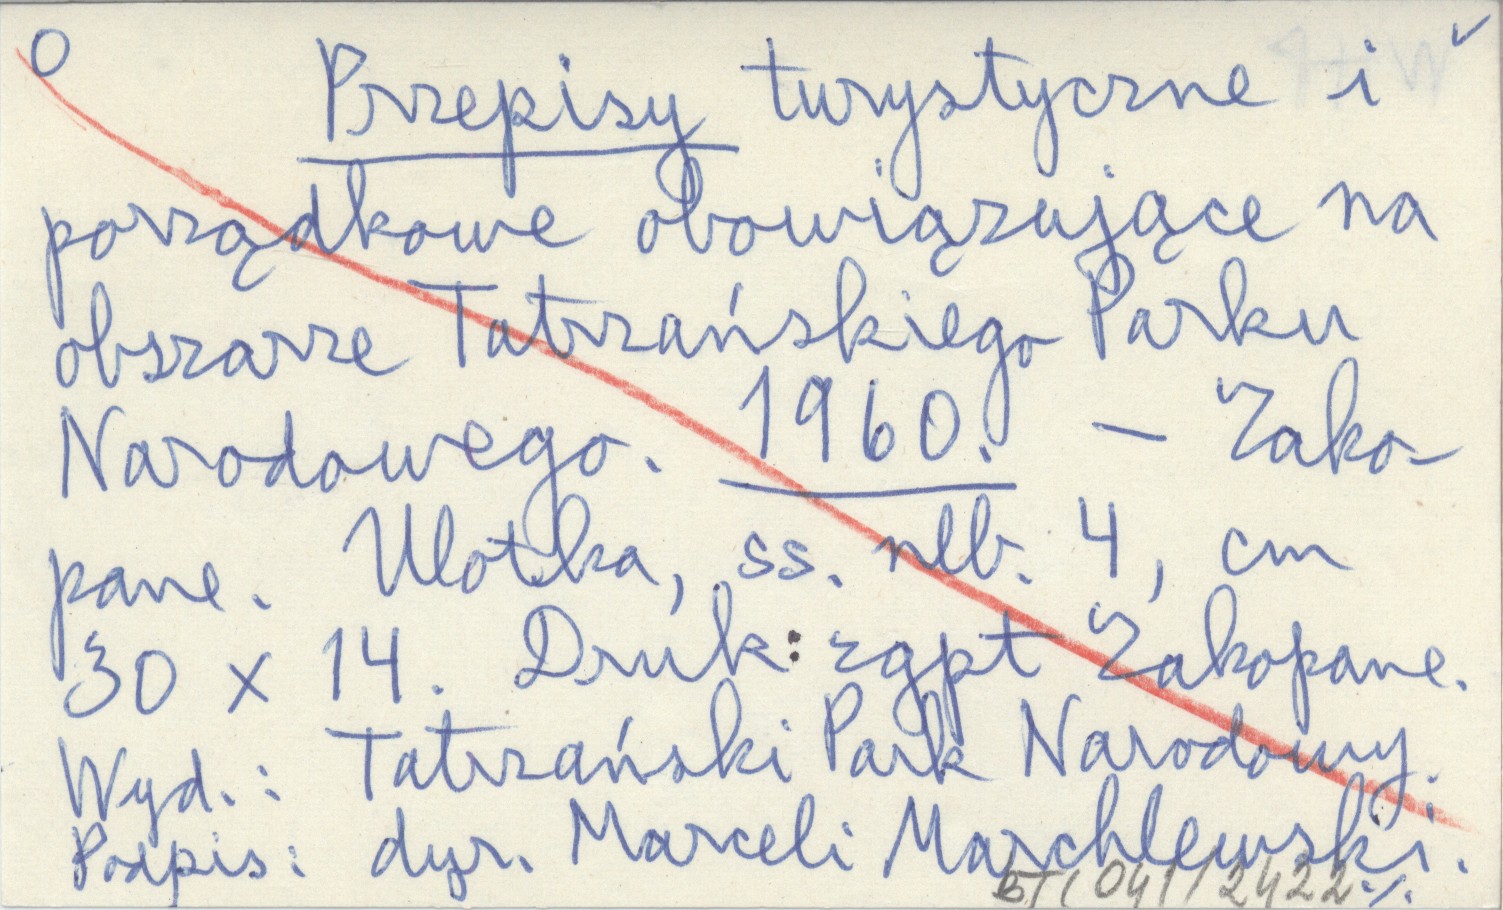 O
Przepisy turystyczne i
porządkowe obowiązujące na
obszarze Tatrzańskiego Parku
Narodowego. 1960. — Zako-
pane. Ulotka, ss. nlb. 4, cm
30 x 14. Druk: zgpt Zakopane.
Wyd.: Tatrzański Park Narodowy.
Podpis: dyr. Marceli Marchlewski.